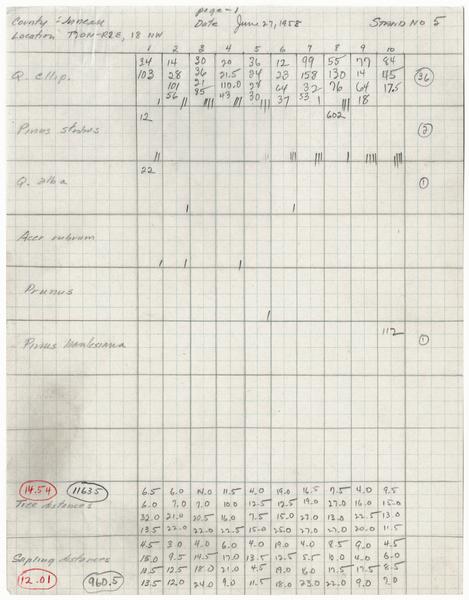 page-1
County - Juneau Date June 27, 1958 STAND NO 5
Location T20N-R2E, 18 NW
1 2 3 4 5 6 7 8 9 10
Q. ellip. 34 14 30 20 36 12 99 55 77 84 36
103 28 36 21.5 84 23 158 130 14 145
101 21 110.0 28 64 32 76 64 17.5
56 85 43 30 37 53 18
Pinus strobus 12 602 2
Q. alba 22 1
Acer rubrum
Prunus
Pinus banksiana 112 1
14.54 1163.5 6.5 6.0 14.0 11.5 4.0 19.0 16.5 7.5 4.0 9.5
Tree distances 6.0 7.0 7.0 10.0 12.5 12.5 19.0 27.0 16.0 15.0
32.0 21.0 20.5 16.0 7.5 15.0 27.0 13.0 22.0 13.0
13.5 22.0 22.0 22.0 15.0 25.0 27.0 27.0 20.0 11.5
4.5 3.0 4.0 6.0 4.0 19.0 4.0 8.5 9.0 4.5
Sapling distances 15.0 9.5 14.5 17.0 13.5 12.5 5.5 10.0 4.0 6.0
10.5 12.5 18.0 21.0 4.5 19.0 16.0 17.5 17.5 8.5
12.01 960.5 13.5 12.0 24.0 9.0 11.5 18.0 23.0 22.0 9.0 7.0